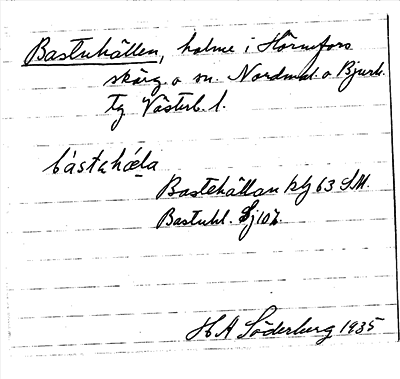 Bastuhällen, holme i Hörnefors
skärg. o sn. Nordmal. o Bjurh.
tg Västerb. l.
bástuhæla
Bastehällan 63 SM.
Bastuhl.
H A Söderberg 1935